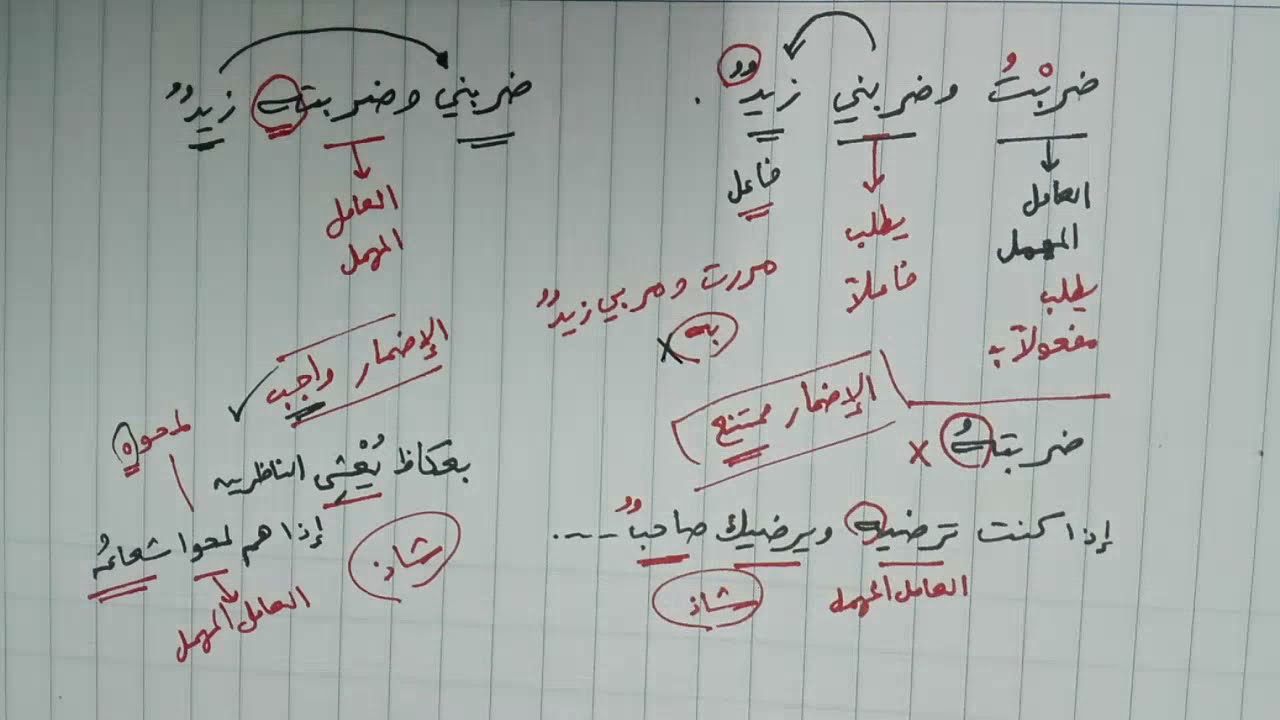 ضربْتُ وضربني زيدٌ .
العامل
المهمل
يطلب
مفعولاً به
يطلب
فاعلاً
فاعل
مررت ومر بي زيدٌ
به x
ضربتهُ x
الإضمار ممتنع
إذا كنت ترضيه ويرضيك صاحبٌ ---..
العامل المهمل
شاذ
ضربني وضربته زيدٌ
العامل
المهمل
الإضمار واجب
لمحوه
بعكاظ يُعْشي الناظرين
إذا هم لمحوا شعاعُه
العامل المهمل
شاذ